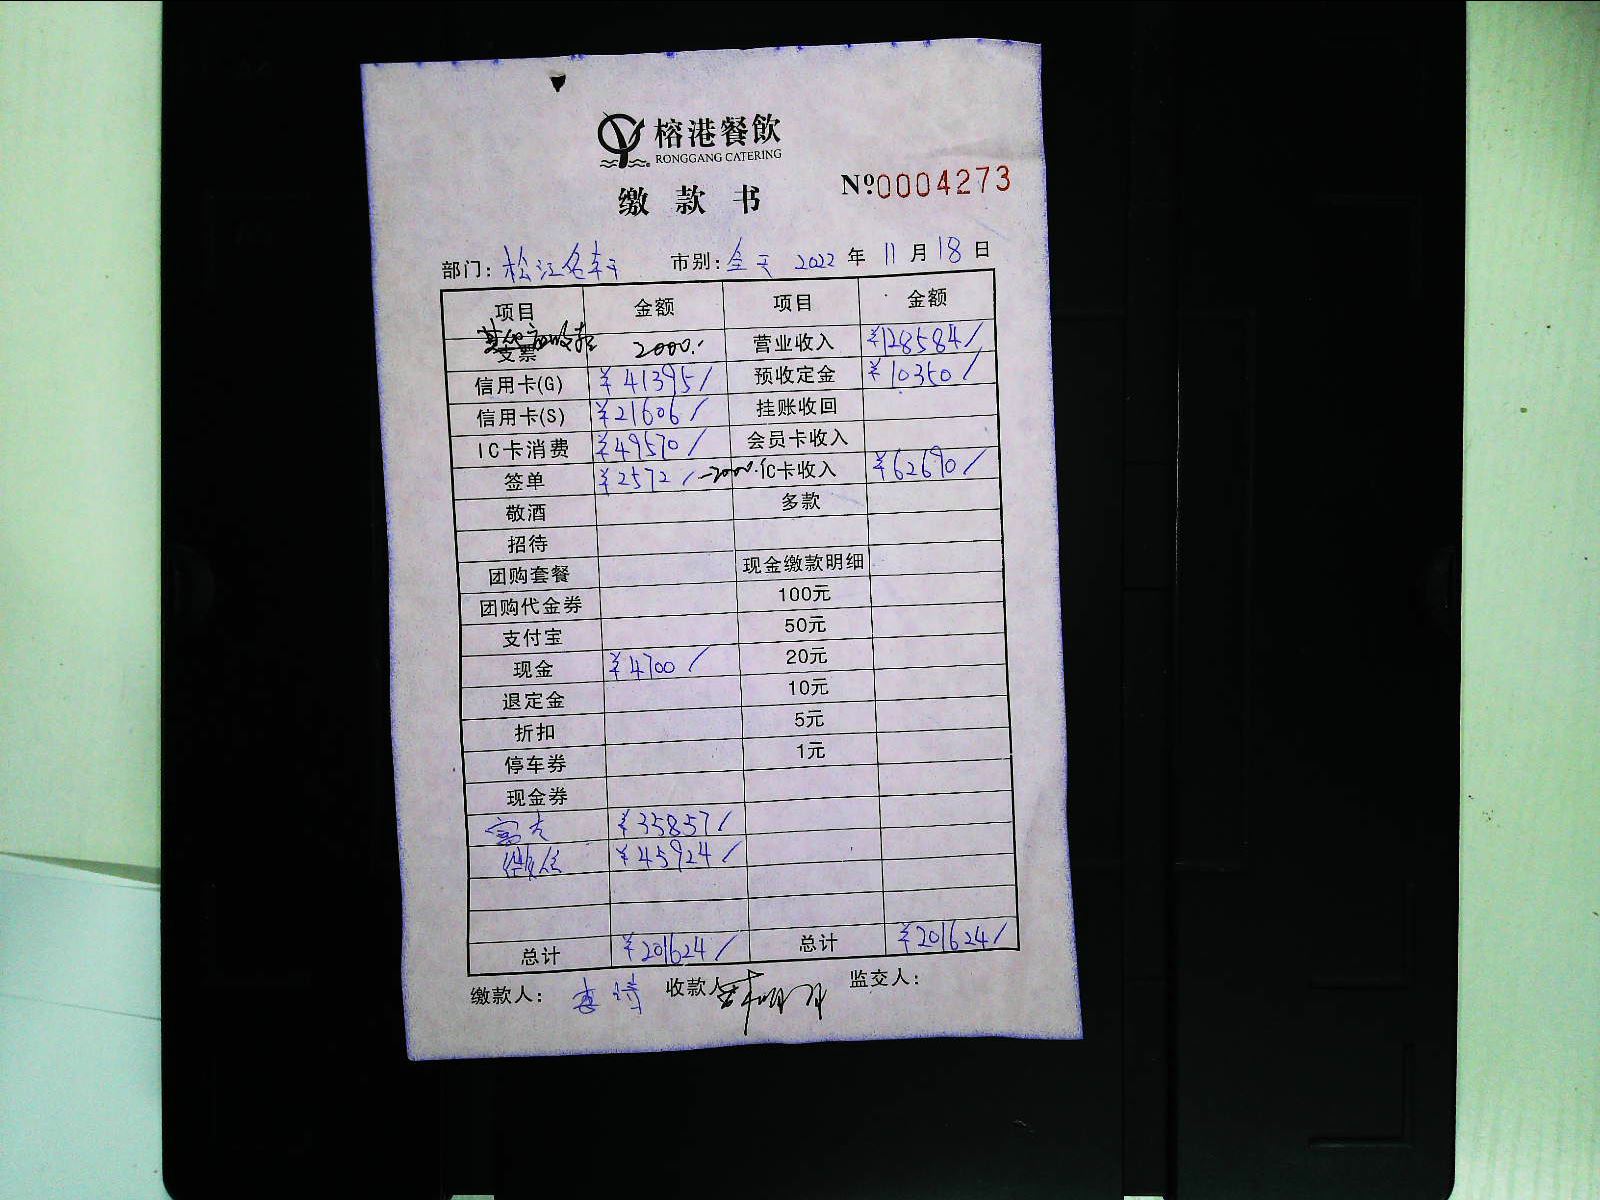 榕港餐飲
RONGGANG CATERING
缴款书
Nº0004273
部门：松江名轩 市别：全天 2022年11月18日
项目 金额 项目 金额
支票 2000.- 营业收入 ¥128584/
信用卡(G) ¥41395/ 预收定金 ¥10350/
信用卡(S) ¥21606/ 挂账收回
IC卡消费 ¥49570/ 会员卡收入
签单 ¥2572/ -2000. IC卡收入 ¥62690/
敬酒 多款
招待
团购套餐 现金缴款明细
团购代金券 100元
支付宝 50元
现金 ¥4700/ 20元
退定金 10元
折扣 5元
停车券 1元
现金券
¥35857/
微信 ¥45924/
总计 ¥201624/ 总计 ¥201624/
缴款人： 收款人 监交人：